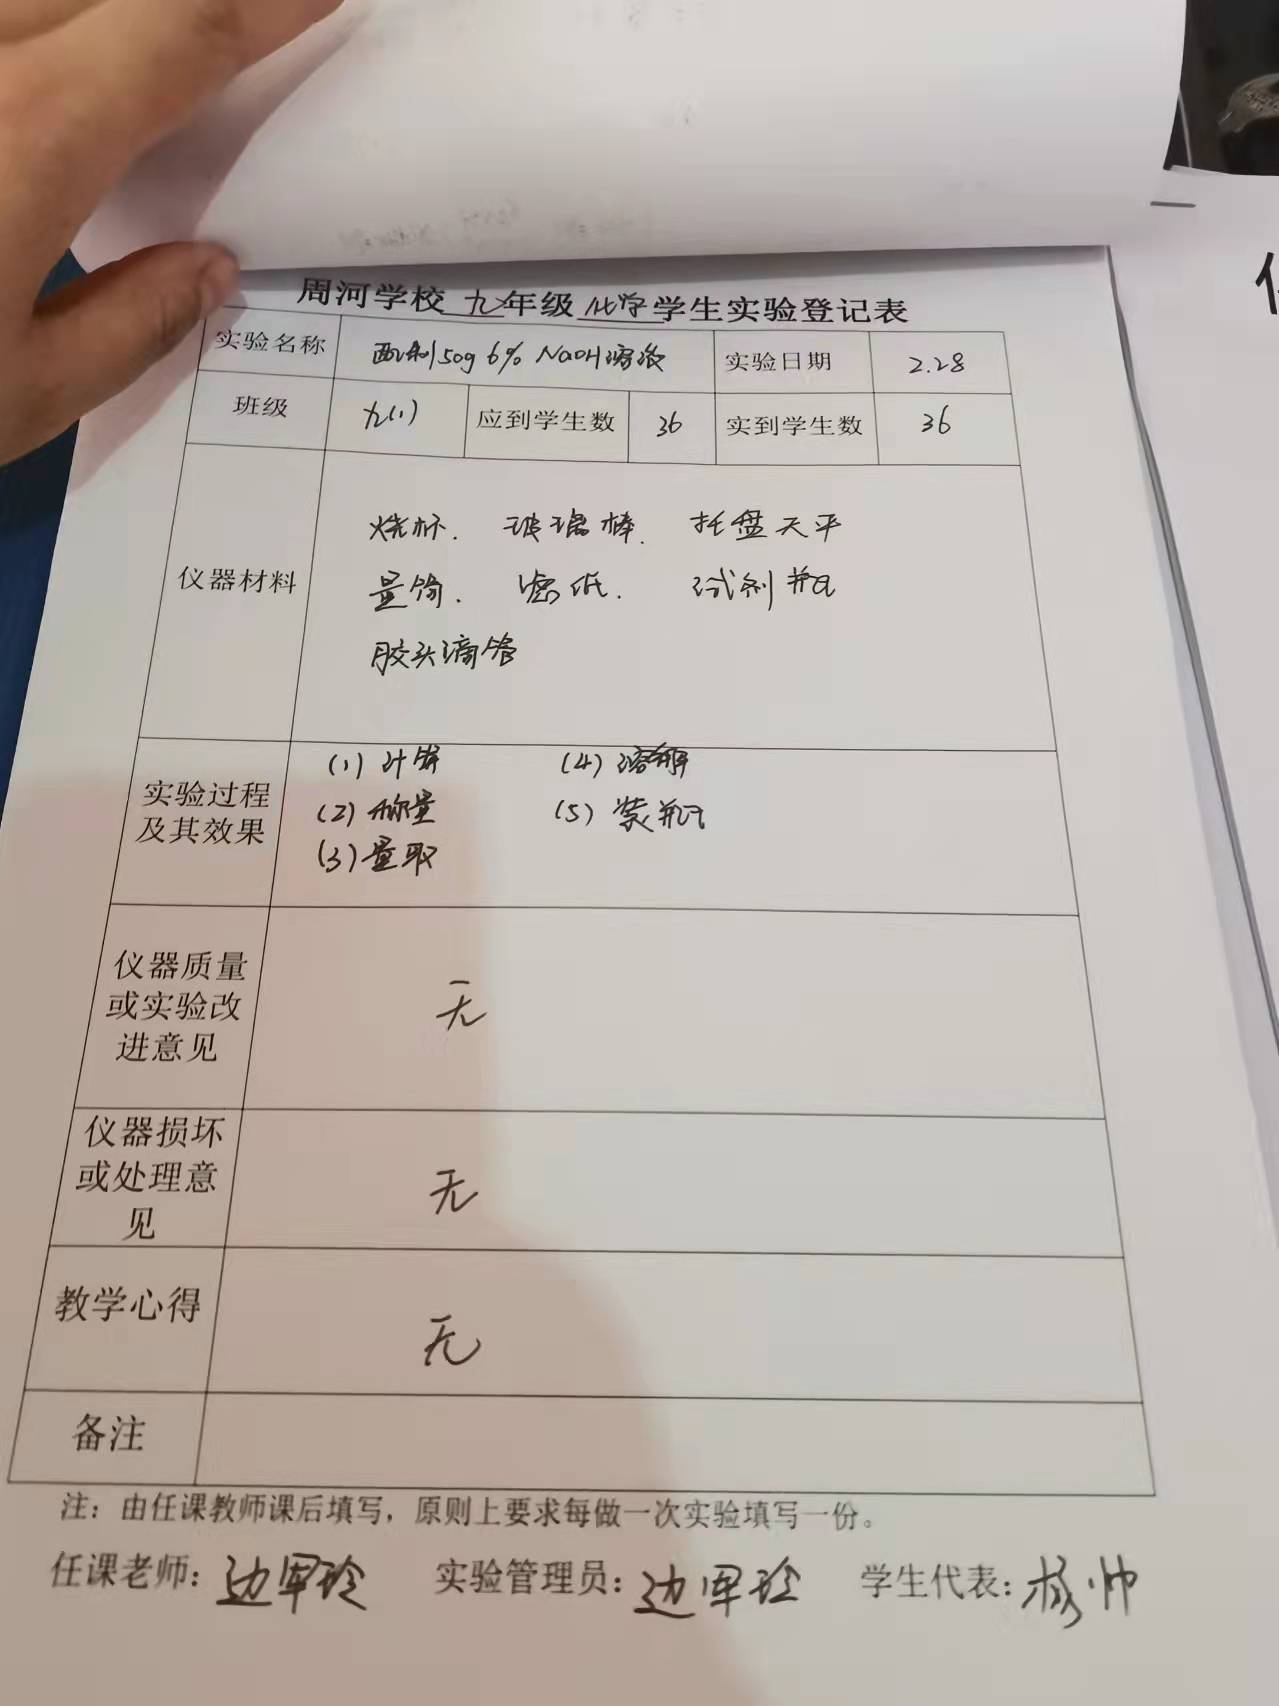 周河学校 九 年级 化学 学生实验登记表
实验名称 配制50g 6% NaOH溶液 实验日期 2.28
班级 九(1) 应到学生数 36 实到学生数 36
仪器材料
烧杯. 玻璃棒. 托盘天平
量筒. 滤纸. 试剂瓶
胶头滴管
实验过程
及其效果
(1) 计算 (4) 溶解
(2) 称量 (5) 装瓶
(3) 量取
仪器质量
或实验改
进意见
无
仪器损坏
或处理意
见
无
教学心得
无
备注
注：由任课教师课后填写，原则上要求每做一次实验填写一份。
任课老师：边军玲 实验管理员：边军玲 学生代表：帅